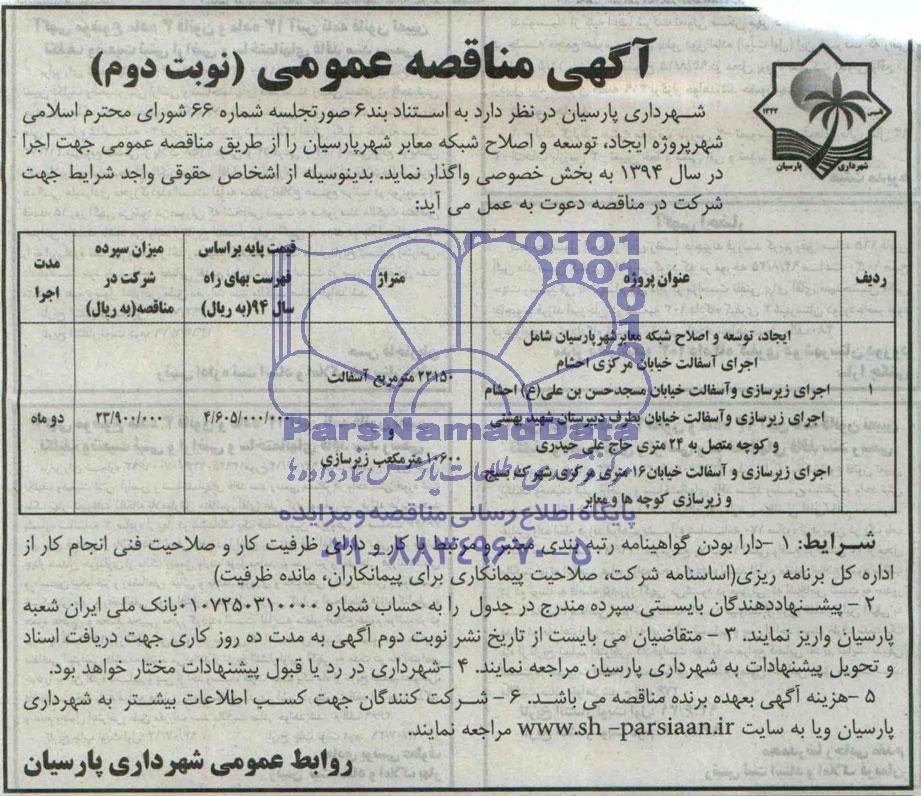 آگهی مناقصه عمومی (نوبت دوم)
شهرداری پارسیان
شهرداری پارسیان در نظر دارد به استناد بند۶ صورتجلسه شماره ۶۶ شورای محترم اسلامی
شهرپروژه ایجاد، توسعه و اصلاح شبکه معابر شهرپارسیان را از طریق مناقصه عمومی جهت اجرا
در سال ۱۳۹۴ به بخش خصوصی واگذار نماید. بدینوسیله از اشخاص حقوقی واجد شرایط جهت
شرکت در مناقصه دعوت به عمل می آید:
ردیف
عنوان پروژه
متراژ
قیمت پایه براساس فهرست بهای راه سال ۹۴(به ریال)
میزان سپرده شرکت در مناقصه(به ریال)
مدت اجرا
۱
ایجاد، توسعه و اصلاح شبکه معابرشهرپارسیان شامل
اجرای آسفالت خیابان مرکزی احشام
اجرای زیرسازی وآسفالت خیابان مسجدحسن بن علی(ع) احشام
اجرای زیرسازی وآسفالت خیابان بطرف دبیرستان شهید بهشتی
و کوچه متصل به ۲۴ متری حاج علی حیدری
اجرای زیرسازی و آسفالت خیابان۱۶ متری مرکزی شهرک بسیج
و زیرسازی کوچه ها و معابر
۲۲۱۵۰ مترمربع آسفالت
و
۱۰۶۰۰ مترمکعب زیرسازی
۴/۶۰۵/۰۰۰/۰۰۰
۲۳/۹۰۰/۰۰۰
دو ماه
ParsNamadData
پایگاه اطلاع رسانی مناقصه و مزایده
۰۲۱-۸۸۳۴۹۶۷۰-۵
شرایط: ۱ -دارا بودن گواهینامه رتبه بندی معتبر و مرتبط با کار و دارای ظرفیت کار و صلاحیت فنی انجام کار از
اداره کل برنامه ریزی(اساسنامه شرکت، صلاحیت پیمانکاری برای پیمانکاران، مانده ظرفیت)
۲ - پیشنهاددهندگان بایستی سپرده مندرج در جدول را به حساب شماره ۰۱۰۷۲۵۰۳۱۰۰۰۰بانک ملی ایران شعبه
پارسیان واریز نمایند. ۳ - متقاضیان می بایست از تاریخ نشر نوبت دوم آگهی به مدت ده روز کاری جهت دریافت اسناد
و تحویل پیشنهادات به شهرداری پارسیان مراجعه نمایند. ۴ -شهرداری در رد یا قبول پیشنهادات مختار خواهد بود.
۵ -هزینه آگهی بعهده برنده مناقصه می باشد. ۶ - شرکت کنندگان جهت کسب اطلاعات بیشتر به شهرداری
پارسیان ویا به سایت www.sh-parsiaan.ir مراجعه نمایند.
روابط عمومی شهرداری پارسیان